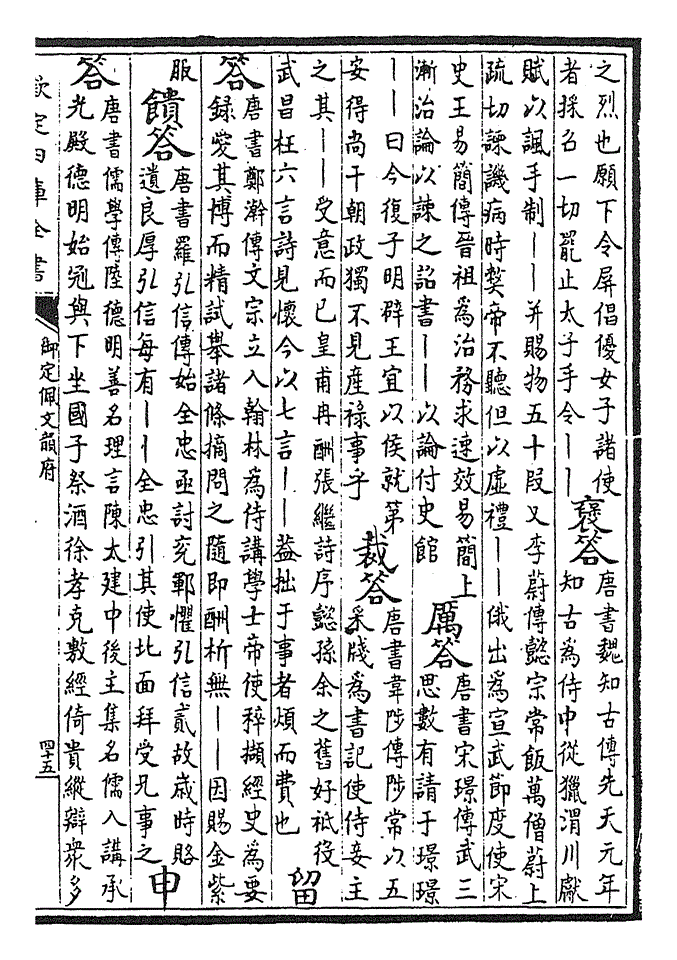 之烈也願下令屏倡優女子諸使
者採召一切罷止太子手令｜｜
褒答
唐書魏知古傳先天元年
知古為侍中從獵渭川獻
賦以諷手制｜｜并賜物五十段又李蔚傳懿宗常飯萬僧蔚上
疏切諫譏病時弊帝不聽但以虛禮｜｜俄出為宣武節度使宋
史王易簡傳晉祖為治務求速效易簡上
漸治論以諫之詔書｜｜以論付史館
厲答
唐書宋璟傳武三
思數有請于璟璟
｜｜曰今復子明辟王宜以侯就第
安得尚干朝政獨不見産祿事乎
裁答
唐書韋陟傳陟常以五
采牋為書記使侍妾主
之其｜｜受意而已皇甫冉酬張繼詩序懿孫余之舊好祗役
武昌枉六言詩見懷今以七言｜｜益拙于事者煩而費也
留
答
唐書鄭澣傳文宗立入翰林為侍講學士帝使稡擷經史為要
録愛其博而精試舉諸條擿問之隨即酬析無｜｜因賜金紫
服
饋答
唐書羅弘信傳始全忠亟討兖鄆懼弘信貳故嵗時賂
遺良厚弘信每有｜｜全忠引其使北面拜受兄事之
申
答
唐書儒學傳陸德明善名理言陳太建中後主集名儒入講承
光殿德明始冠與下坐國子祭酒徐孝克敷經倚貴縱辯衆多
欽定四庫全書
御定佩文韻府
四十五